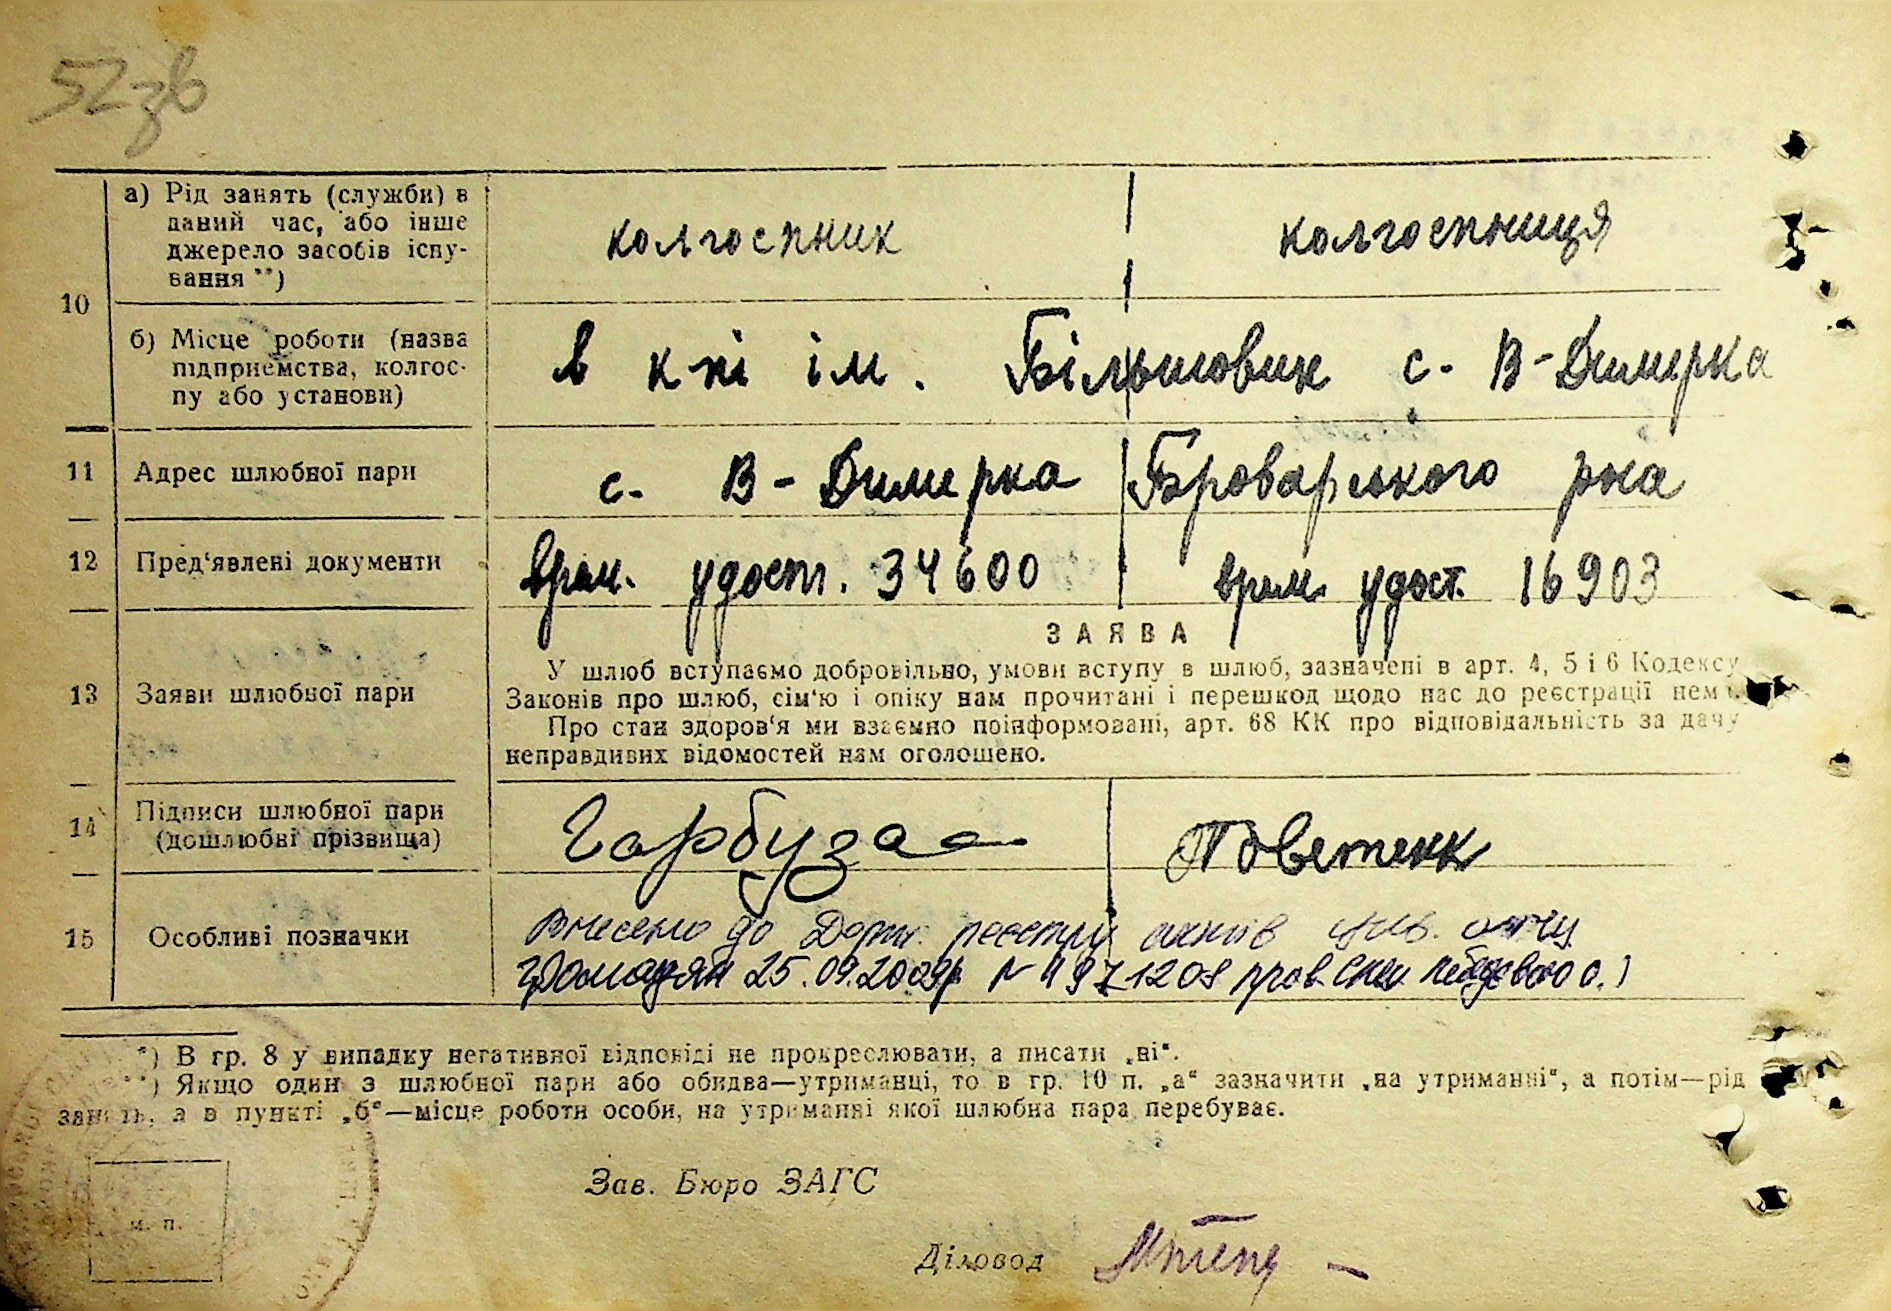 52зв
а) Рід занять (служби) в
даний час, або інше
джерело засобів існу-
вання **)
колгоспник
колгоспниця
10
б) Місце роботи (назва
підприємства, колгос-
пу або установи)
в к-пі ім. Більшовик с. В-Димерка
11 Адрес шлюбної пари
с. В-Димерка Броварського р-на
12 Пред‘явлені документи
врем. удост. 34600
врем. удост. 16903
ЗАЯВА
13 Заяви шлюбної пари
У шлюб вступаємо добровільно, умови вступу в шлюб, зазначені в арт. 4, 5 і 6 Кодексу
Законів про шлюб, сім‘ю і опіку нам прочитані і перешкод щодо нас до реєстрації нема.
Про стан здоров‘я ми взаємно поінформовані, арт. 68 КК про відповідальність за дачу
неправдивих відомостей нам оголошено.
14 Підписи шлюбної пари
(дошлюбні прізвища)
Гарбуза
Поветкин
15 Особливі позначки
Внесено до Держ. реєстру актів цив. стану
громадян 25.09.2009р № 4971208 пров. спец.
*) В гр. 8 у випадку негативної відповіді не прокреслювати, а писати „ні“.
**) Якщо один з шлюбної пари або обидва—утриманці, то в гр. 10 п. „а“ зазначити „на утриманні“, а потім—рід
занять, а в пункті „б“—місце роботи особи, на утриманні якої шлюбна пара перебуває.
Зав. Бюро ЗАГС
м. п.
Діловод